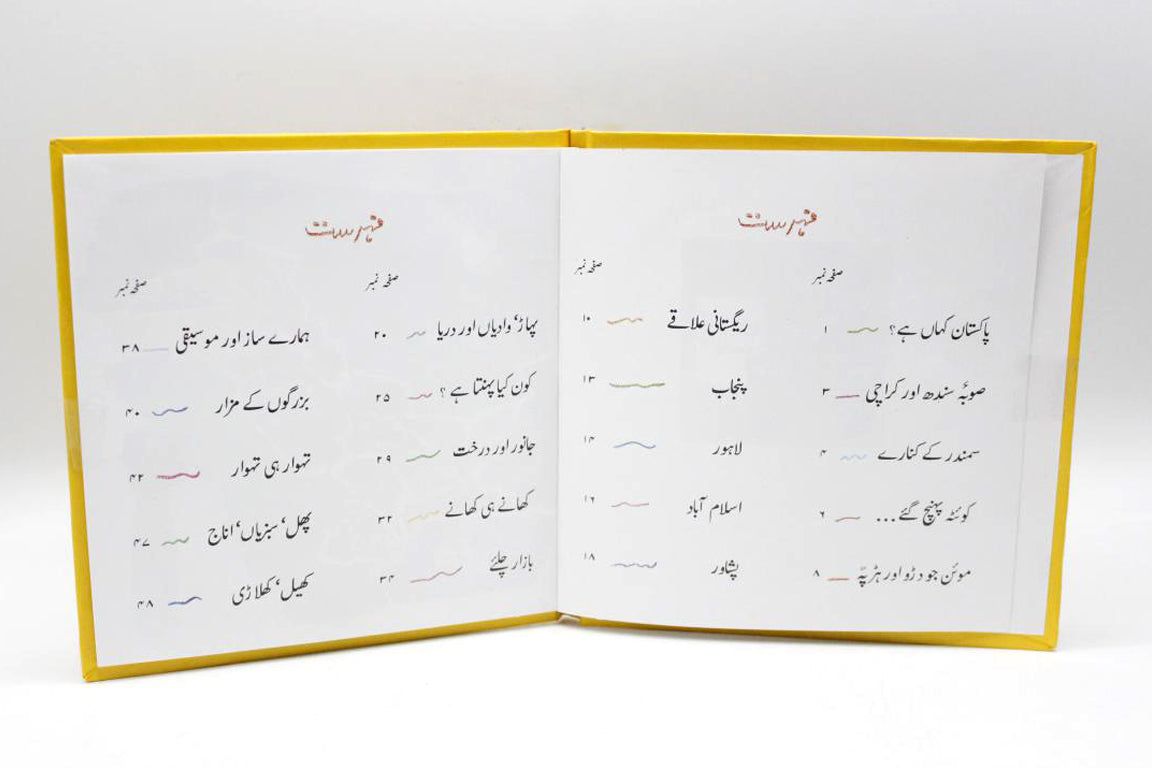 فہرست
صفحہ نمبر
پاکستان کہاں ہے؟ ۱
صوبۂ سندھ اور کراچی ۳
سمندر کے کنارے ۴
کوئٹہ پہنچ گئے... ۶
موئن جو دڑو اور ہڑپّہ ۸
صفحہ نمبر
ریگستانی علاقے ۱۰
پنجاب ۱۳
لاہور ۱۴
اسلام آباد ۱۶
پشاور ۱۸
فہرست
صفحہ نمبر
پہاڑ، وادیاں اور دریا ۲۰
کون کیا پہنتا ہے؟ ۲۵
جانور اور درخت ۲۹
کھانے ہی کھانے ۳۲
بازار چلئے ۳۴
صفحہ نمبر
ہمارے ساز اور موسیقی ۳۸
بزرگوں کے مزار ۴۰
تہوار ہی تہوار ۴۲
پھل، سبزیاں، اناج ۴۷
کھیل، کھلاڑی ۴۸